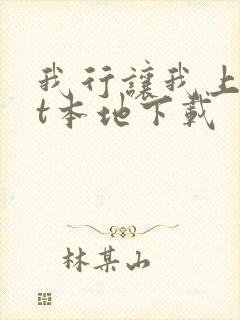 我行讓我上
t本地下載
林某山